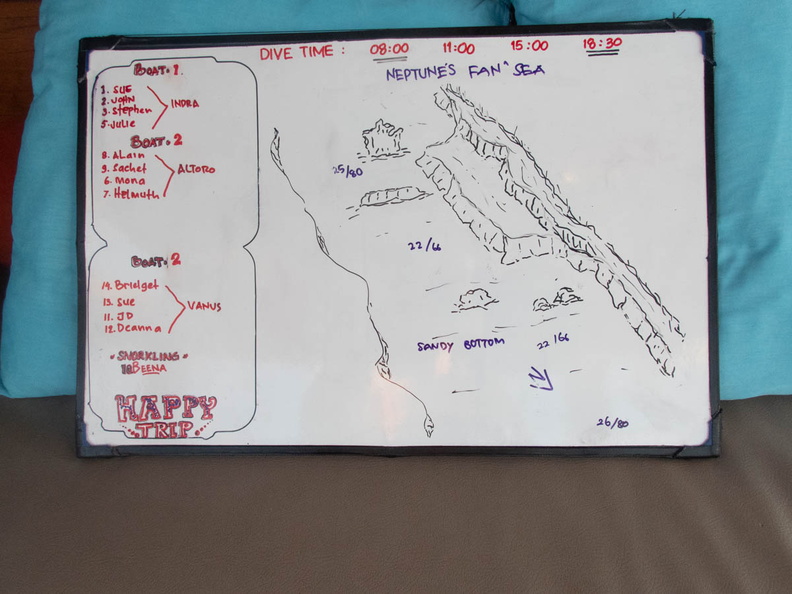 DIVE TIME : 08:00 11:00 15:00 18:30
NEPTUNE'S FAN^ SEA
BOAT. 1.
1. SUE
2. JOHN
3. Stephen
5. Julie
INDRA
BOAT. 2
8. ALain
9. Sachet
6. Mona
7. Helmuth
ALTORO
BOAT. 2
14. Bridget
13. Sue
11. JD
12. Deanna
VANUS
• SNORKLING •
10 BEENA
HAPPY
TRIP
25/80
22/66
SANDY BOTTOM
22/66
N
26/80